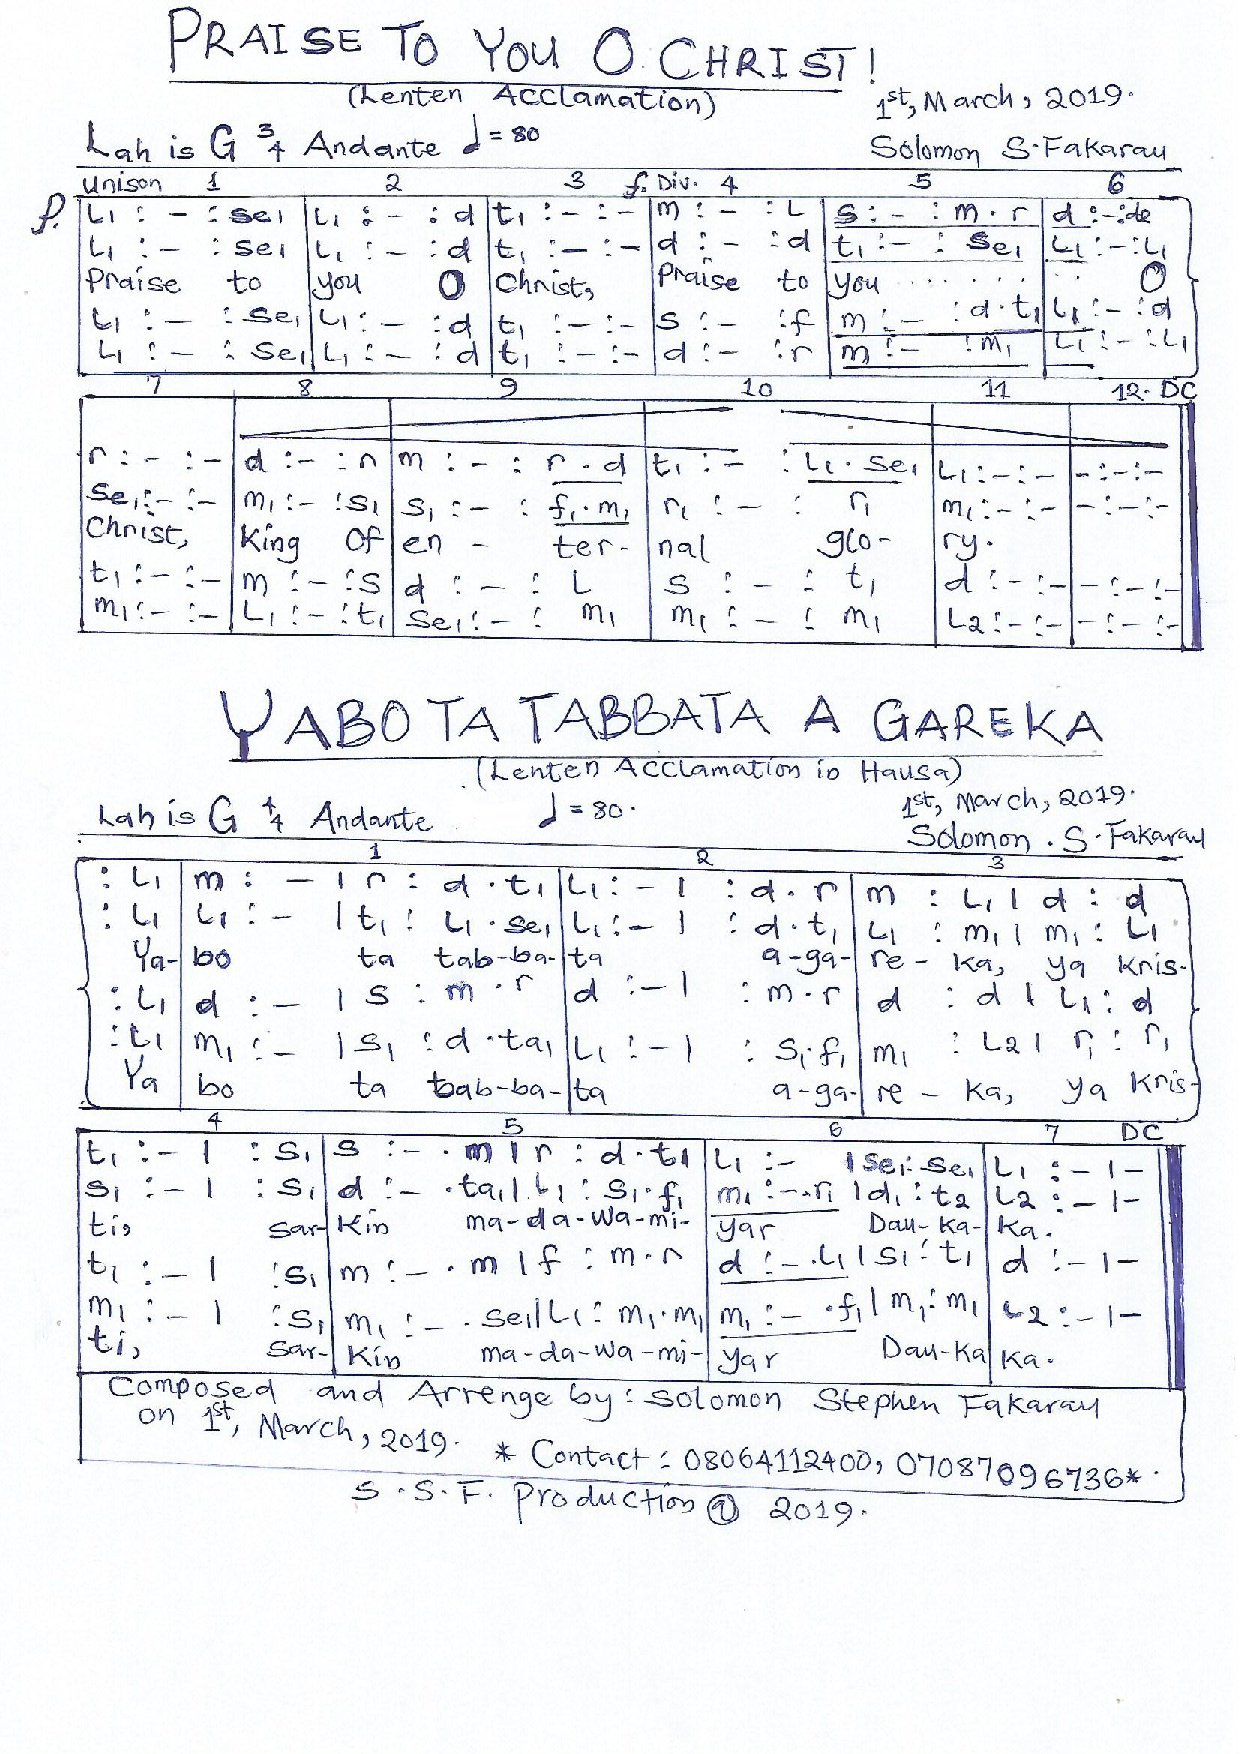 PRAISE TO YOU O CHRIST!
(Lenten Acclamation)
1st, March, 2019.
Lah is G 3/4 Andante ♩=80
Solomon S.Fakarau
Unison 1 2 3 f. Div. 4 5 6
p. L₁ : – : se₁ | L₁ : – : d | t₁ : – : – | m : – : L | s : – : m . r | d : – : de
L₁ : – : se₁ | L₁ : – : d | t₁ : – : – | d : – : d | t₁ : – : se₁ | L₁ : – : L₁
Praise to you O Christ, Praise to you ........ O
L₁ : – : se₁ | L₁ : – : d | t₁ : – : – | s : – : f | m : – : d . t₁ | L₁ : – : d
L₁ : – : se₁ | L₁ : – : d | t₁ : – : – | d : – : r | m : – : m₁ | L₁ : – : L₁
7 8 9 10 11 12. DC
r : – : – | d : – : r | m : – : r . d | t₁ : – : L₁ . se₁ | L₁ : – : – | – : – : –
se₁ : – : – | m₁ : – : s₁ | s₁ : – : f₁ . m₁ | r₁ : – : r₁ | m₁ : – : – | – : – : –
Christ, King Of en - ter- nal glo- ry.
t₁ : – : – | m : – : s | d : – : L | s : – : t₁ | d : – : – | – : – : –
m₁ : – : – | L₁ : – : t₁ | se₁ : – : m₁ | m₁ : – : m₁ | L₂ : – : – | – : – : –
YABO TA TABBATA A GAREKA
(Lenten Acclamation in Hausa)
Lah is G 4/4 Andante ♩=80.
1st, March, 2019.
Solomon . S.Fakarau
1 2 3
: L₁ | m : – | r : d . t₁ | L₁ : – | : d . r | m : L₁ | d : d
: L₁ | L₁ : – | t₁ : L₁ . se₁ | L₁ : – | : d . t₁ | L₁ : m₁ | m₁ : L₁
Ya- bo ta tab-ba- ta a-ga- re - ka, ya Kris-
: L₁ | d : – | s : m . r | d : – | : m . r | d : d | L₁ : d
: L₁ | m₁ : – | s₁ : d . ta₁ | L₁ : – | : s₁ . f₁ | m₁ : L₂ | r₁ : r₁
Ya bo ta tab-ba- ta a-ga- re - ka, ya Kris-
4 5 6 7 DC
t₁ : – | : s₁ | s : – . m | r : d . t₁ | L₁ : – | se₁ : se₁ | L₁ : – | –
s₁ : – | : s₁ | d : – . ta₁ | L₁ : s₁ . f₁ | m₁ : – . r₁ | d₁ : t₂ | L₂ : – | –
ti, Sar- Kin ma-da-wa-mi- yar Dau-ka- Ka.
t₁ : – | : s₁ | m : – . m | f : m . r | d : – . L₁ | s₁ : t₁ | d : – | –
m₁ : – | : s₁ | m₁ : – . se₁ | L₁ : m₁ . m₁ | m₁ : – . f₁ | m₁ : m₁ | L₂ : – | –
ti, Sar- Kin ma-da-wa-mi- yar Dau-Ka Ka.
Composed and Arrenge by: Solomon Stephen Fakarau
on 1st, March, 2019. * Contact : 08064112400, 07087096736*.
S.S.F. Production @ 2019.